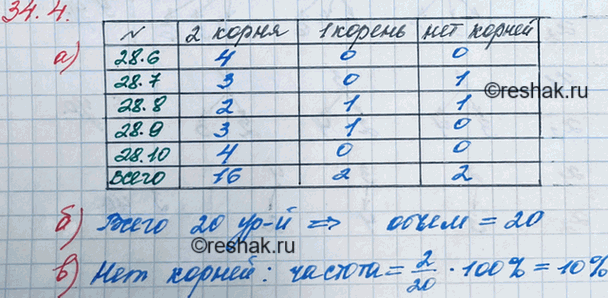 34.4.
№ 2 корня 1 корень нет корней
а) 28.6 4 0 0
28.7 3 0 1
©reshak.ru
28.8 2 1 1
28.9 3 1 0
28.10 4 0 0
всего 16 2 2
б) Всего 20 ур-й => объем = 20
©reshak.ru
в) Нет корней: частота = 2/20 · 100% = 10%